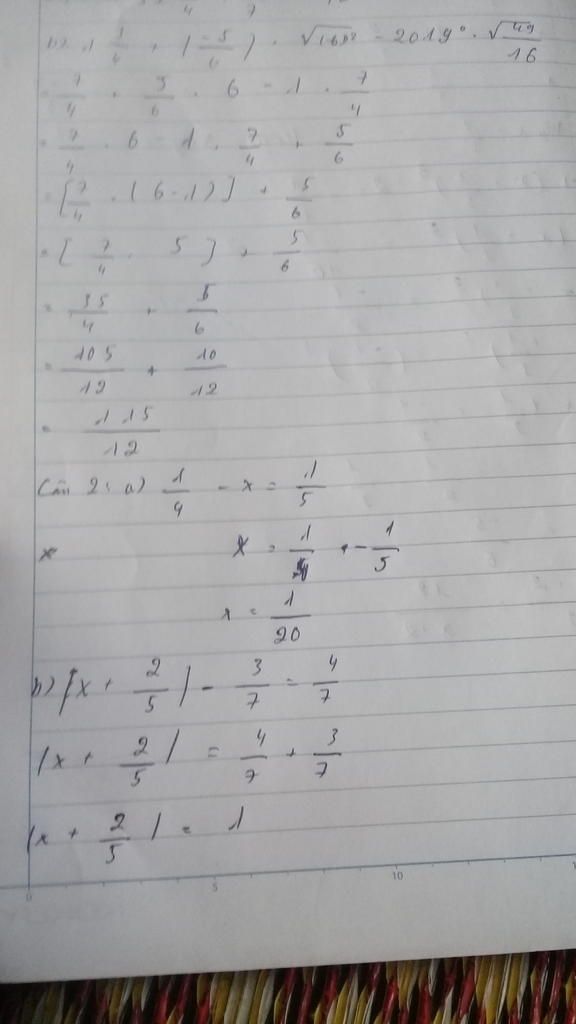 = 7/4 + 5/6 . 6 - 1 . 7/4
= 7/4 . 6 - 1 . 7/4 + 5/6
= [7/4 . (6-1)] + 5/6
= [7/4 . 5] + 5/6
= 35/4 + 5/6
= 105/12 + 10/12
= 115/12
Câu 2: a) 1/4 - x = 1/5
x x = 1/4 + - 1/5
x = 1/20
b) |x + 2/5| - 3/7 = 4/7
|x + 2/5| = 4/7 + 3/7
|x + 2/5| = 1
0 5 10